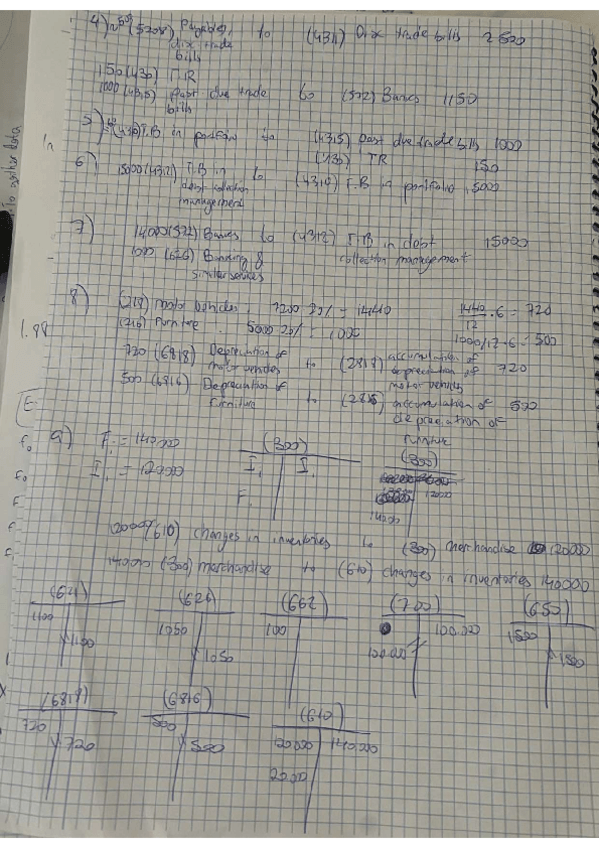 4) (5208) Payables, to (4311) Dix trade bills 2500
dix trade
bills
150 (430) TR
1000 (4315) past due trade to (572) Banks 1150
bills
5) (4310) T.B in portfolio to (4315) past due trade bills 1000
(430) TR 150
6) 15000 (4312) T.B in to (4310) T.B in portfolio 15000
debt collection
management
7) 14000 (572) Banks to (4312) T.B in debt 15000
1000 (626) Banking & collection management
similar services
8) (218) motor vehicles. 7200 20% = 1440 1440/12 . 6 = 720
(216) Furniture. 5000 20% = 1000 1000/12 . 6 = 500
720 (6818) Depreciation of to (2818) accumulation of 720
motor vehicles depreciation of
motor vehicles
500 (6816) Depreciation of to (2816) accumulation of 500
furniture depreciation of
furniture
9) F. = 140.000 (300) (300)
I. = 120000 I. I.
F. 12000
120000 (610) changes in inventories to (300) merchandise 120000
140000 (300) merchandise to (610) changes in inventories 140000
(621) (626) (662) (700) (650)
1100 1050 100 100.000 1500
1100 1050 100.000 1500
(6818) (6816) (610)
720 500 120.000 140.000
720 500 20.000